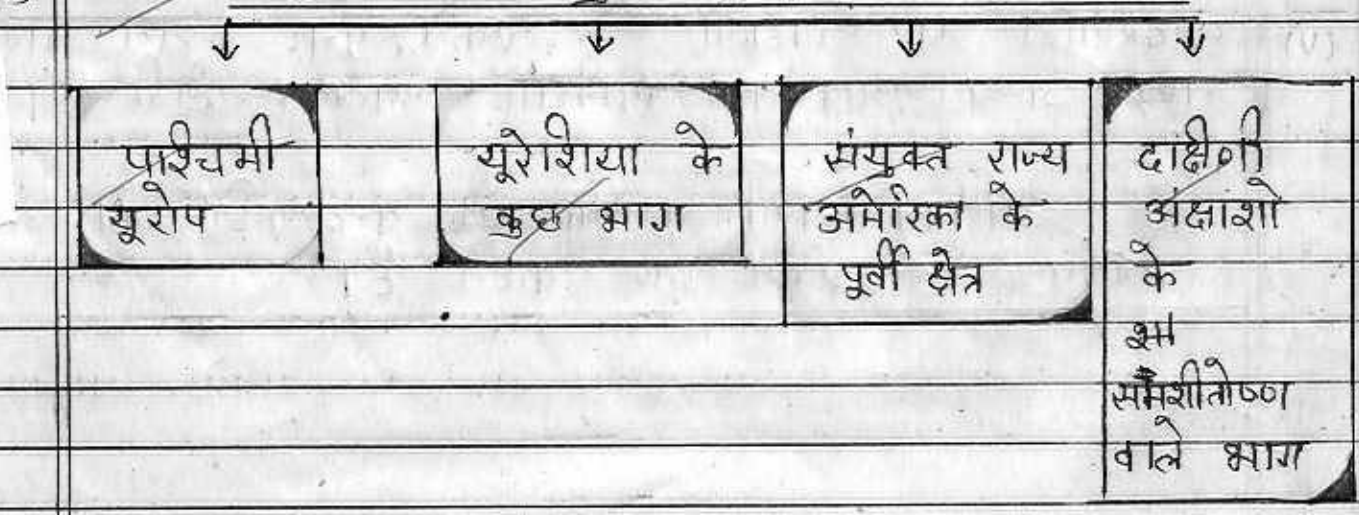 पाश्चिमी
यूरोप
यूरेशिया के
कुछ भाग
संयुक्त राज्य
अमेरिका के
पूर्वी क्षेत्र
दक्षिणी
अंक्षाशो
के
समशीतोष्ण
वाले भाग